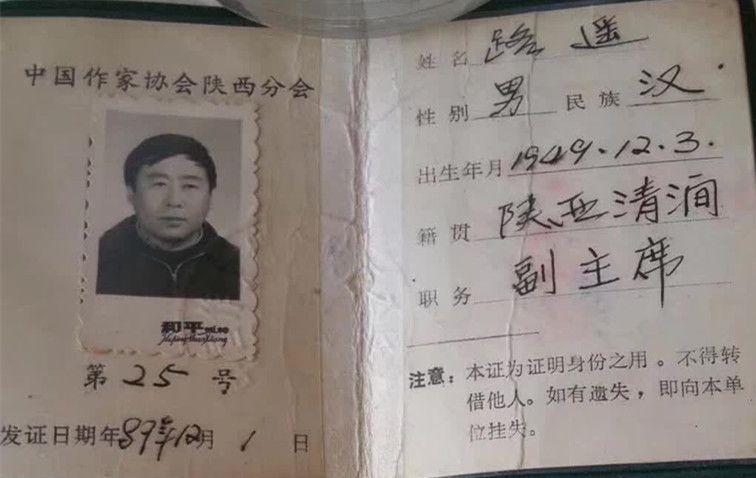 中国作家协会陕西分会
和平
第 25 号
发证日期 年89年12月1日
姓名 路遥
性别 男 民族 汉
出生年月 1949.12.3.
籍贯 陕西清涧
职务 副主席
注意：本证为证明身份之用。不得转
借他人。如有遗失，即向本单
位挂失。